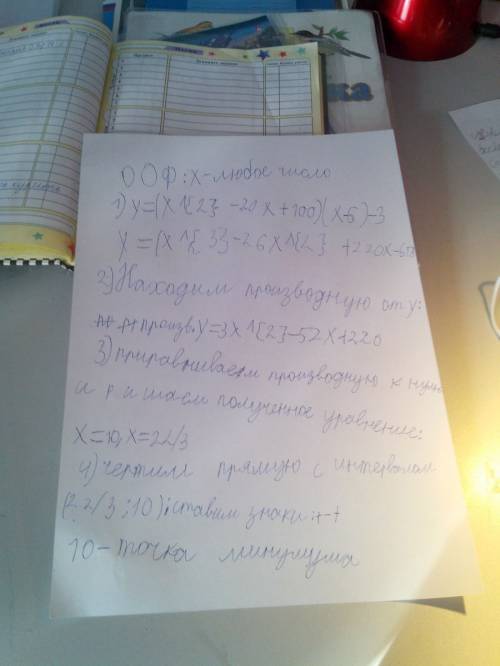 ООФ: х-любое число
1) y=(x^{2} -20x+100)(x-6)-3
y=(x^{3}-26x^{2} +220x-
2) Находим производную от y:
произв. y=3x^{2}-52x+220
3) приравниваем производную к
и решаем полученное уравнение:
x=10, x=22/3
4) чертим прямую с интервалом
(22/3;10); ставим знаки: +-+
10-точка минимума